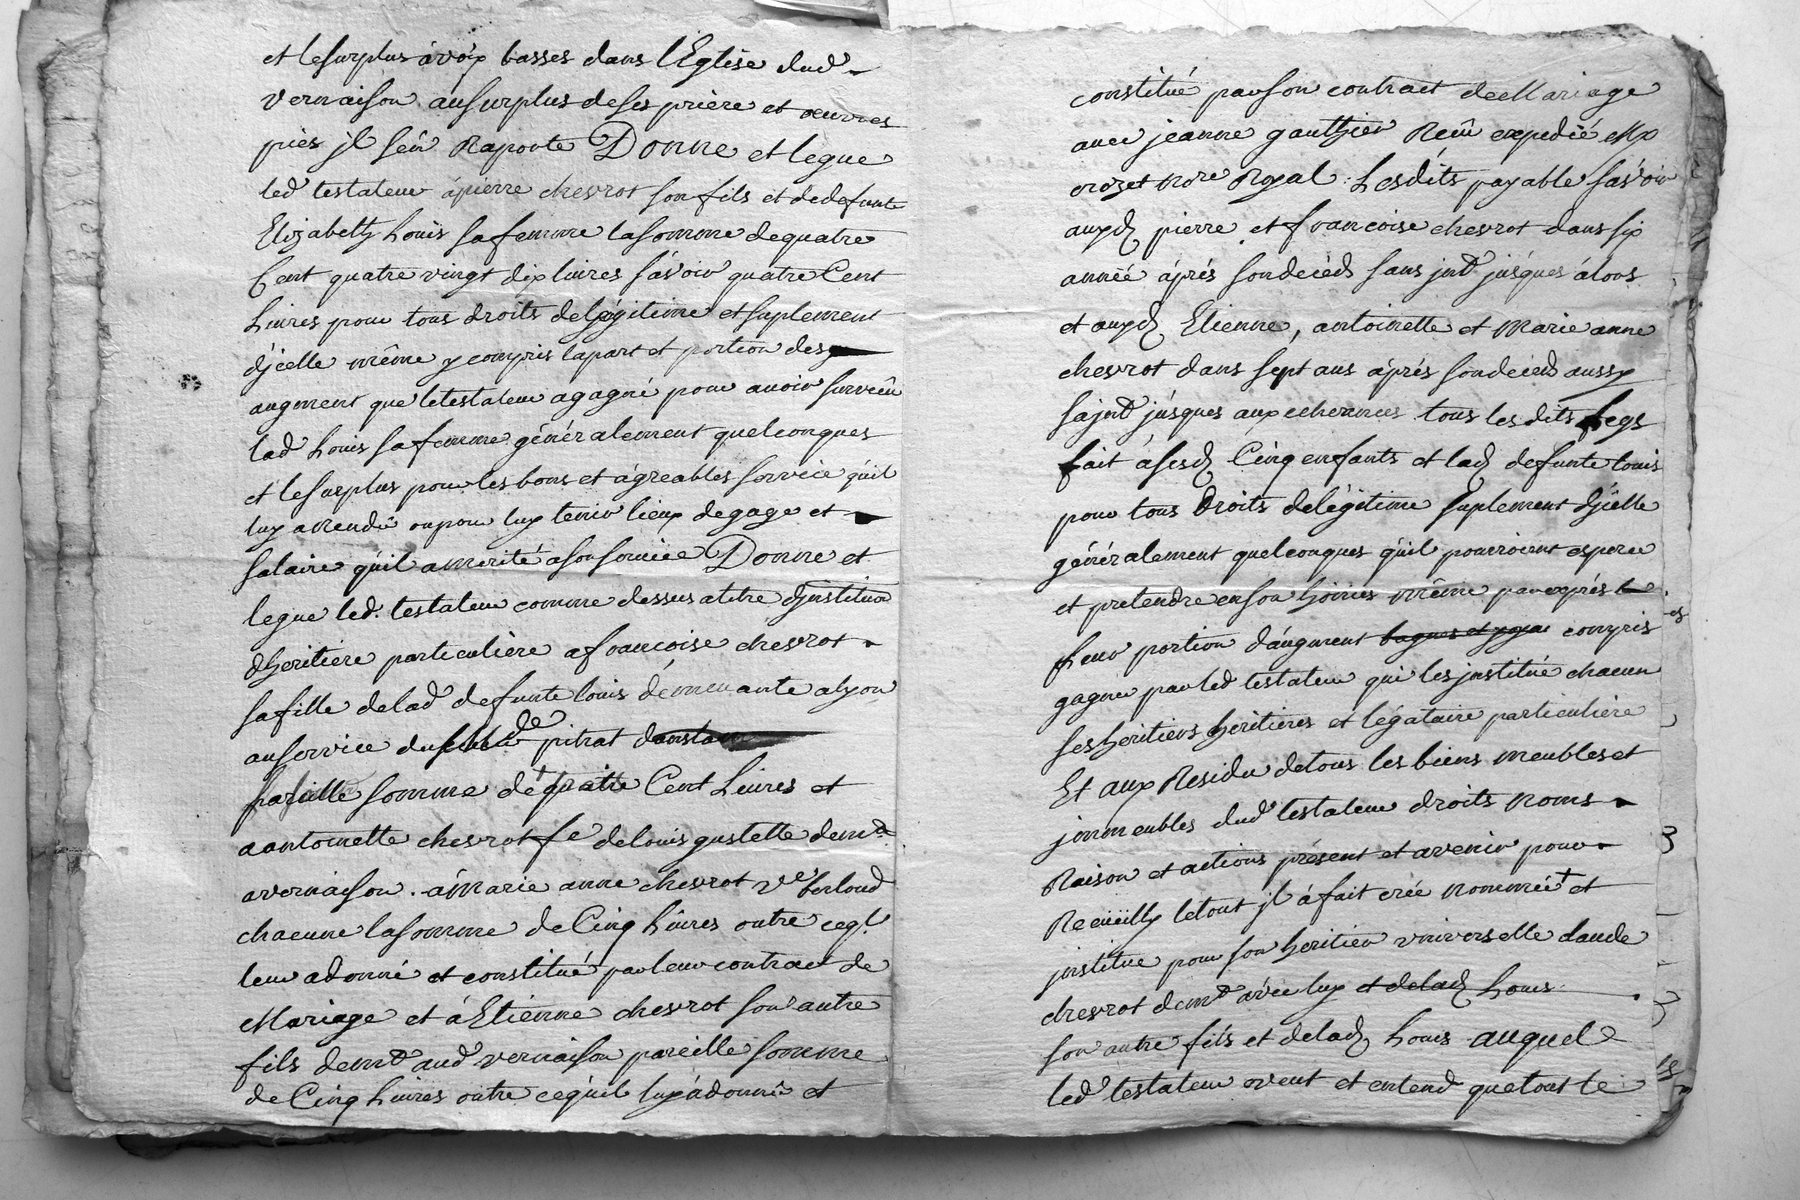 et le surplus à voix basses dans l'Eglise dud.
vernaison au surplus de ses prière et oeuvres
pies jl sên Raporte Donne et legue
led testateur à pierre chevrot son fils et de defunte
Elizabeth Louis sa femme la somme de quatre
Cent quatre vingt dix livres sávoir quatre Cent
Livres pour tous droits de légitime et suplement
djcelle même y compris la part et portion des
augment que le testateur a gagné pour avoir survécu
lad Louis sa femme généralement quelconques
et le surplus pour les bons et agreables service qúil
luy a Rendu ou pour luy tenir lieux de gage et
salaire qúil a merité a son service Donne et
legue led. testateur comme dessus a titre djnstitution
dheritiere particulière a francoise chevrot
sa fille de lad defunte louis démeurante a lyon
au service du de pitrat
pareille somme dé quatre Cent Livres et
a antoinette chevrot fe de louis gustelle demt
a vernaison. á Marie anne chevrot ve berloud
chacune la somme de Cinq Livres outre ceql
leur a donné et constitué par leur contract de
Mariage et á Etienne chevrot son autre
fils demt aud vernaison pareille somme
de Cinq Livres outre ce qúil luy á donné et
constitué par son contract de Mariage
avec jeanne gauthier Reçu expedié Mx
crozet Nore Royal. Lesdits payable sávoir
auxd pierre et francoise chevrot dans six
année áprés son decéd sans jnt jusques álors
et auxd Etienne, antoinette et Marie anne
chevrot dans sept ans áprés son deced aussy
sa jnt júsques aux echeances tous les dits legs
fait á ses d Cinq enfants et lad defunte louis
pour tous Droits de légitime suplement djcelle
généralement quelconques qúil pourroient esperer
et pretendre en son hoiries même par exprés
Leur portion dáugment bagues et joyaux compris
es
gagnée par led testateur qui les jnstitué chacun
ses heritiers heritières et légataire particulière
Et aux Residu de tous les biens meubles et
jmmeubles dud testateur droits Noms
Raison et actions présent et avenir pour
Recüeilly le tout jl á fait crée Nommée et
jnstitue pour son heritier universelle claude
chevrot demt ávec luy et de lad Louis
son autre fils et de lad Louis auquel
led testateur veut et entend que tout le